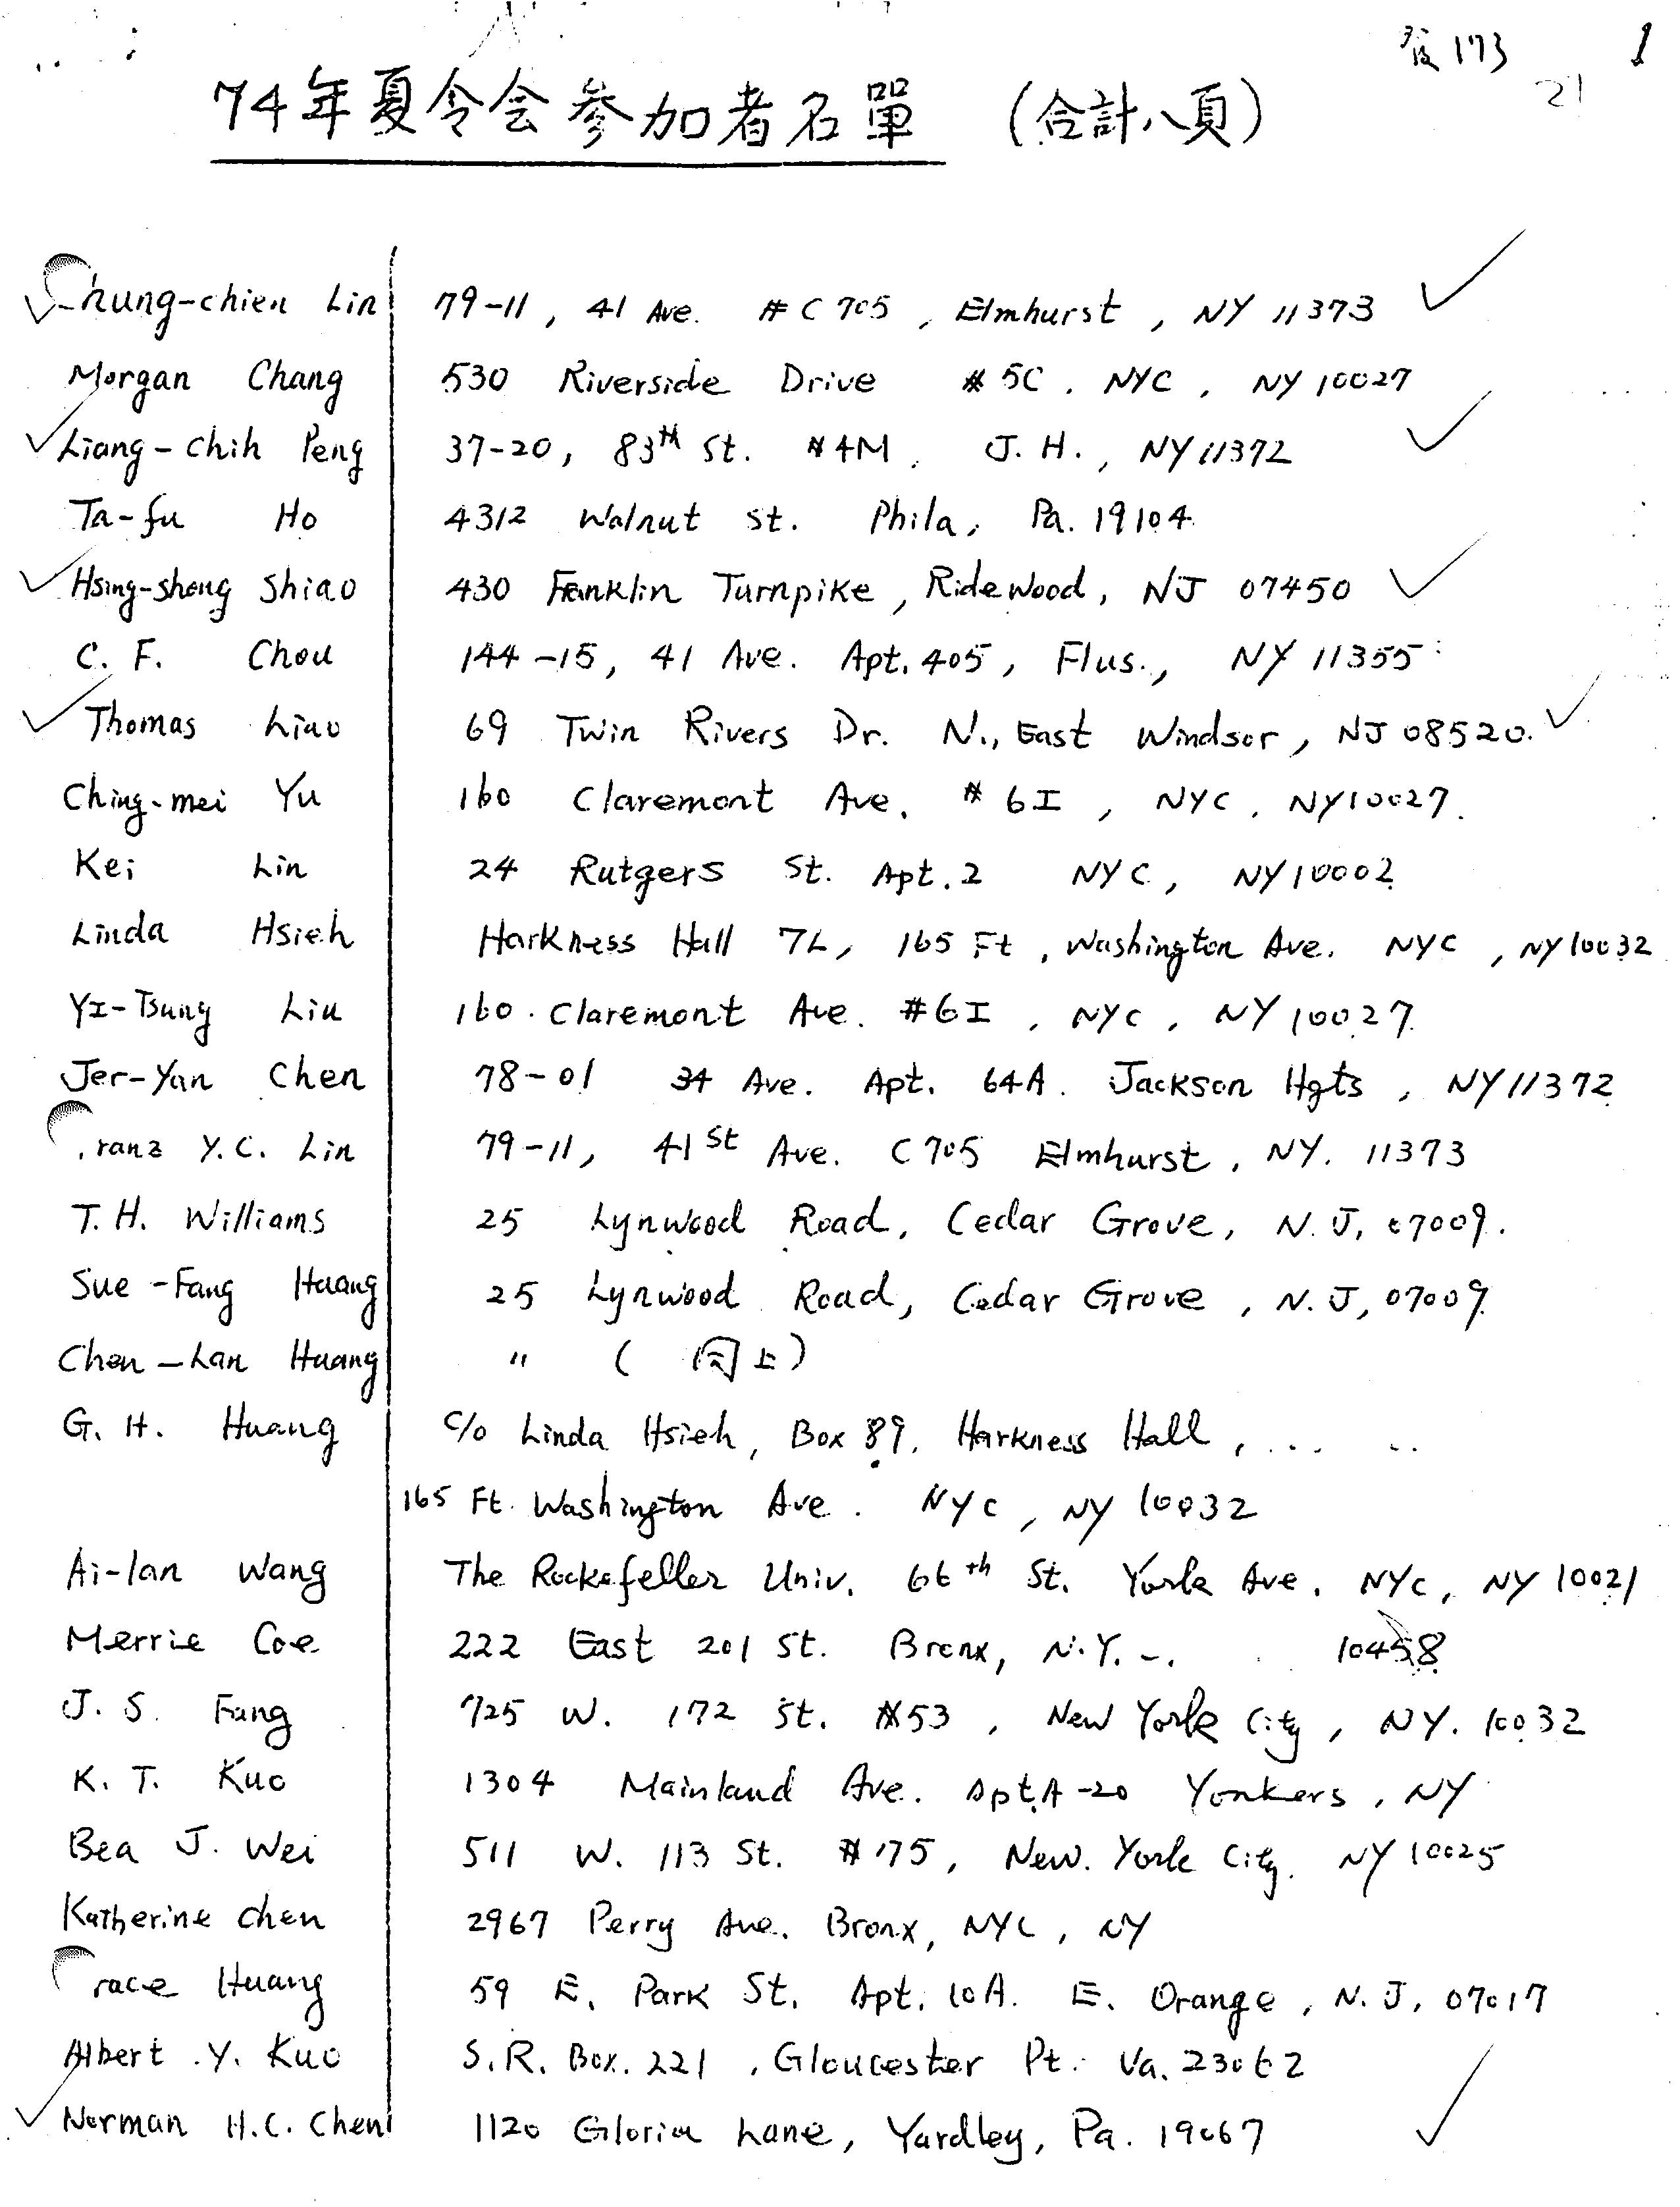 發 173 1
21
74年夏令会参加者名單 (合計八頁)
hung-chien Lin 79-11, 41 Ave. # C 705, Elmhurst, NY 11373
Morgan Chang 530 Riverside Drive # 5C, NYC, NY 10027
Liang-chih Peng 37-20, 83th St. #4M, J.H., NY 11372
Ta-fu Ho 4312 Walnut St. Phila, Pa. 19104
Hsing-sheng Shiao 430 Franklin Turnpike, Ridewood, NJ 07450
C. F. Chou 144-15, 41 Ave. Apt. 405, Flus., NY 11355
Thomas Liao 69 Twin Rivers Dr. N., East Windsor, NJ 08520.
Ching-mei Yu 160 Claremont Ave. # 6I, NYC, NY 10027.
Kei Lin 24 Rutgers St. Apt. 2 NYC, NY 10002
Linda Hsieh Harkness Hall 7L, 165 Ft, Washington Ave. NYC, NY 10032
YI-Tsung Liu 160. Claremont Ave. #6I, NYC, NY 10027
Jer-Yan Chen 78-01 34 Ave. Apt. 64A. Jackson Hgts, NY 11372
ranz Y.C. Lin 79-11, 41st Ave. C705 Elmhurst, NY. 11373
T. H. Williams 25 Lynwood Road, Cedar Grove, N. J, 07009.
Sue-Fang Huang 25 Lynwood Road, Cedar Grove, N. J, 07009
Chen-Lan Huang " (同上)
G. H. Huang c/o Linda Hsieh, Box 89, Harkness Hall, ... ..
165 Ft. Washington Ave. NYC, NY 10032
Ai-lan Wang The Rockefeller Univ. 66th St. York Ave. NYC, NY 10021
Merrie Coe 222 East 201 St. Bronx, N.Y. -. 10458
J. S. Fang 725 W. 172 St. #53, New York City, NY. 10032
K. T. Kuo 1304 Mainland Ave. Apt. A-20 Yonkers, NY
Bea J. Wei 511 W. 113 St. #175, New. York City. NY 10025
Katherine Chen 2967 Perry Ave. Bronx, NYC, NY
race Huang 59 E. Park St. Apt. 10A. E. Orange, N. J, 07017
Albert .Y. Kuo S.R. Box. 221, Gloucester Pt. Va. 23062
Norman H.C. Chen 1120 Gloria Lane, Yardley, Pa. 19067